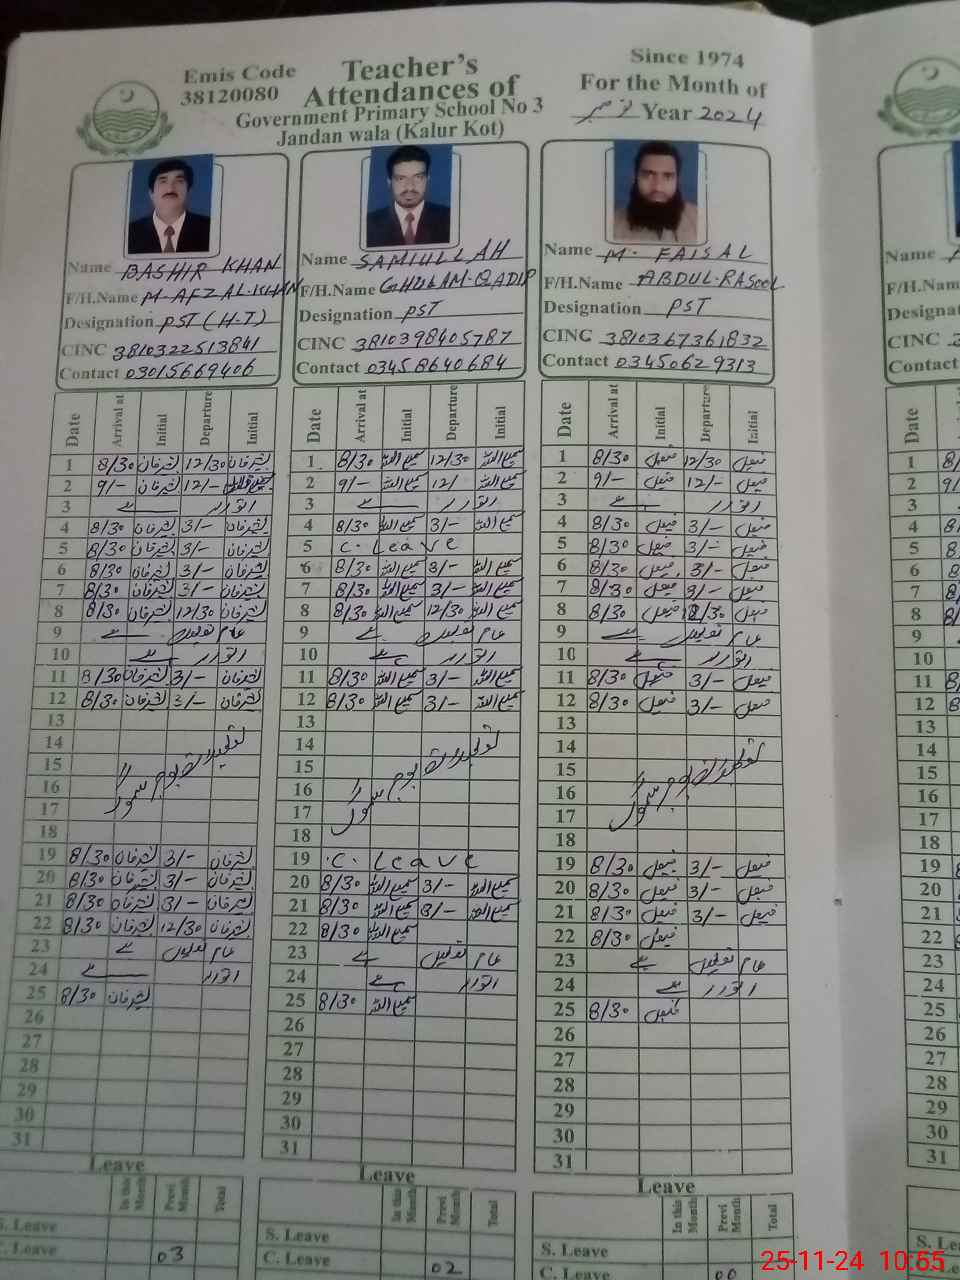 Emis Code
38120080
Teacher's
Attendances of
Government Primary School No 3
Jandan wala (Kalur Kot)
Since 1974
For the Month of
نومبر Year 2024
Name BASHIR KHAN
F/H.Name M-AFZAL-KHAN
Designation PST (H-T)
CINC 3810322513841
Contact 03015669406
Name SAMIULLAH
F/H.Name GHULAM-QADIR
Designation PST
CINC 3810398405787
Contact 03458640684
Name M. FAISAL
F/H.Name ABDUL-RASOOL
Designation PST
CINC 3810367361832
Contact 03450629313
Date Arrival at Initial Departure Initial
1 8/30 بشیرخان 12/30 بشیرخان
2 9/- بشیرخان 12/-
3 اتوار ہے
4 8/30 بشیرخان 3/- بشیرخان
5 8/30 بشیرخان 3/- بشیرخان
6 8/30 بشیرخان 3/- بشیرخان
7 8/30 بشیرخان 3/- بشیرخان
8 8/30 بشیرخان 12/30 بشیرخان
9 عام تعطیل ہے
10 اتوار ہے
11 8/30 بشیرخان 3/- بشیرخان
12 8/30 بشیرخان 3/- بشیرخان
13
14
15 تعطیلات بوجہ سموگ
16
17
18
19 8/30 بشیرخان 3/- بشیرخان
20 8/30 بشیرخان 3/- بشیرخان
21 8/30 بشیرخان 3/- بشیرخان
22 8/30 بشیرخان 12/30 بشیرخان
23 عام تعطیل ہے
24 اتوار ہے
25 8/30 بشیرخان
26
27
28
29
30
31
Leave
In this Month Previ Month Total
S. Leave
C. Leave 03
Date Arrival at Initial Departure Initial
1 8/30 سمیع اللہ 12/30 سمیع اللہ
2 9/- سمیع اللہ 12/ سمیع اللہ
3 اتوار ہے
4 8/30 سمیع اللہ 3/- سمیع اللہ
5 C. Leave
6 8/30 سمیع اللہ 3/- سمیع اللہ
7 8/30 سمیع اللہ 3/- سمیع اللہ
8 8/30 سمیع اللہ 12/30 سمیع اللہ
9 عام تعطیل ہے
10 اتوار ہے
11 8/30 سمیع اللہ 3/- سمیع اللہ
12 8/30 سمیع اللہ 3/- سمیع اللہ
13
14
15 تعطیلات بوجہ سموگ
16
17
18
19 C. Leave
20 8/30 سمیع اللہ 3/- سمیع اللہ
21 8/30 سمیع اللہ 3/- سمیع اللہ
22 8/30 سمیع اللہ
23 عام تعطیل ہے
24 اتوار ہے
25 8/30 سمیع اللہ
26
27
28
29
30
31
Leave
In this Month Previ Month Total
S. Leave
C. Leave 02
Date Arrival at Initial Departure Initial
1 8/30 فیصل 12/30 فیصل
2 9/- فیصل 12/- فیصل
3 اتوار ہے
4 8/30 فیصل 3/- فیصل
5 8/30 فیصل 3/- فیصل
6 8/30 فیصل 3/- فیصل
7 8/30 فیصل 3/- فیصل
8 8/30 فیصل 12/30 فیصل
9 عام تعطیل ہے
10 اتوار ہے
11 8/30 فیصل 3/- فیصل
12 8/30 فیصل 3/- فیصل
13
14
15 تعطیلات بوجہ سموگ
16
17
18
19 8/30 فیصل 3/- فیصل
20 8/30 فیصل 3/- فیصل
21 8/30 فیصل 3/- فیصل
22 8/30 فیصل
23 عام تعطیل ہے
24 اتوار ہے
25 8/30 فیصل
26
27
28
29
30
31
Leave
In this Month Previ Month Total
S. Leave
C. Leave 00
Name
F/H.Name
Designat
CINC
Contact
Date
1
2
3
4
5
6
7
8
9
10
11
12
13
14
15
16
17
18
19
20
21
22
23
24
25
26
27
28
29
30
31
25-11-24 10:55